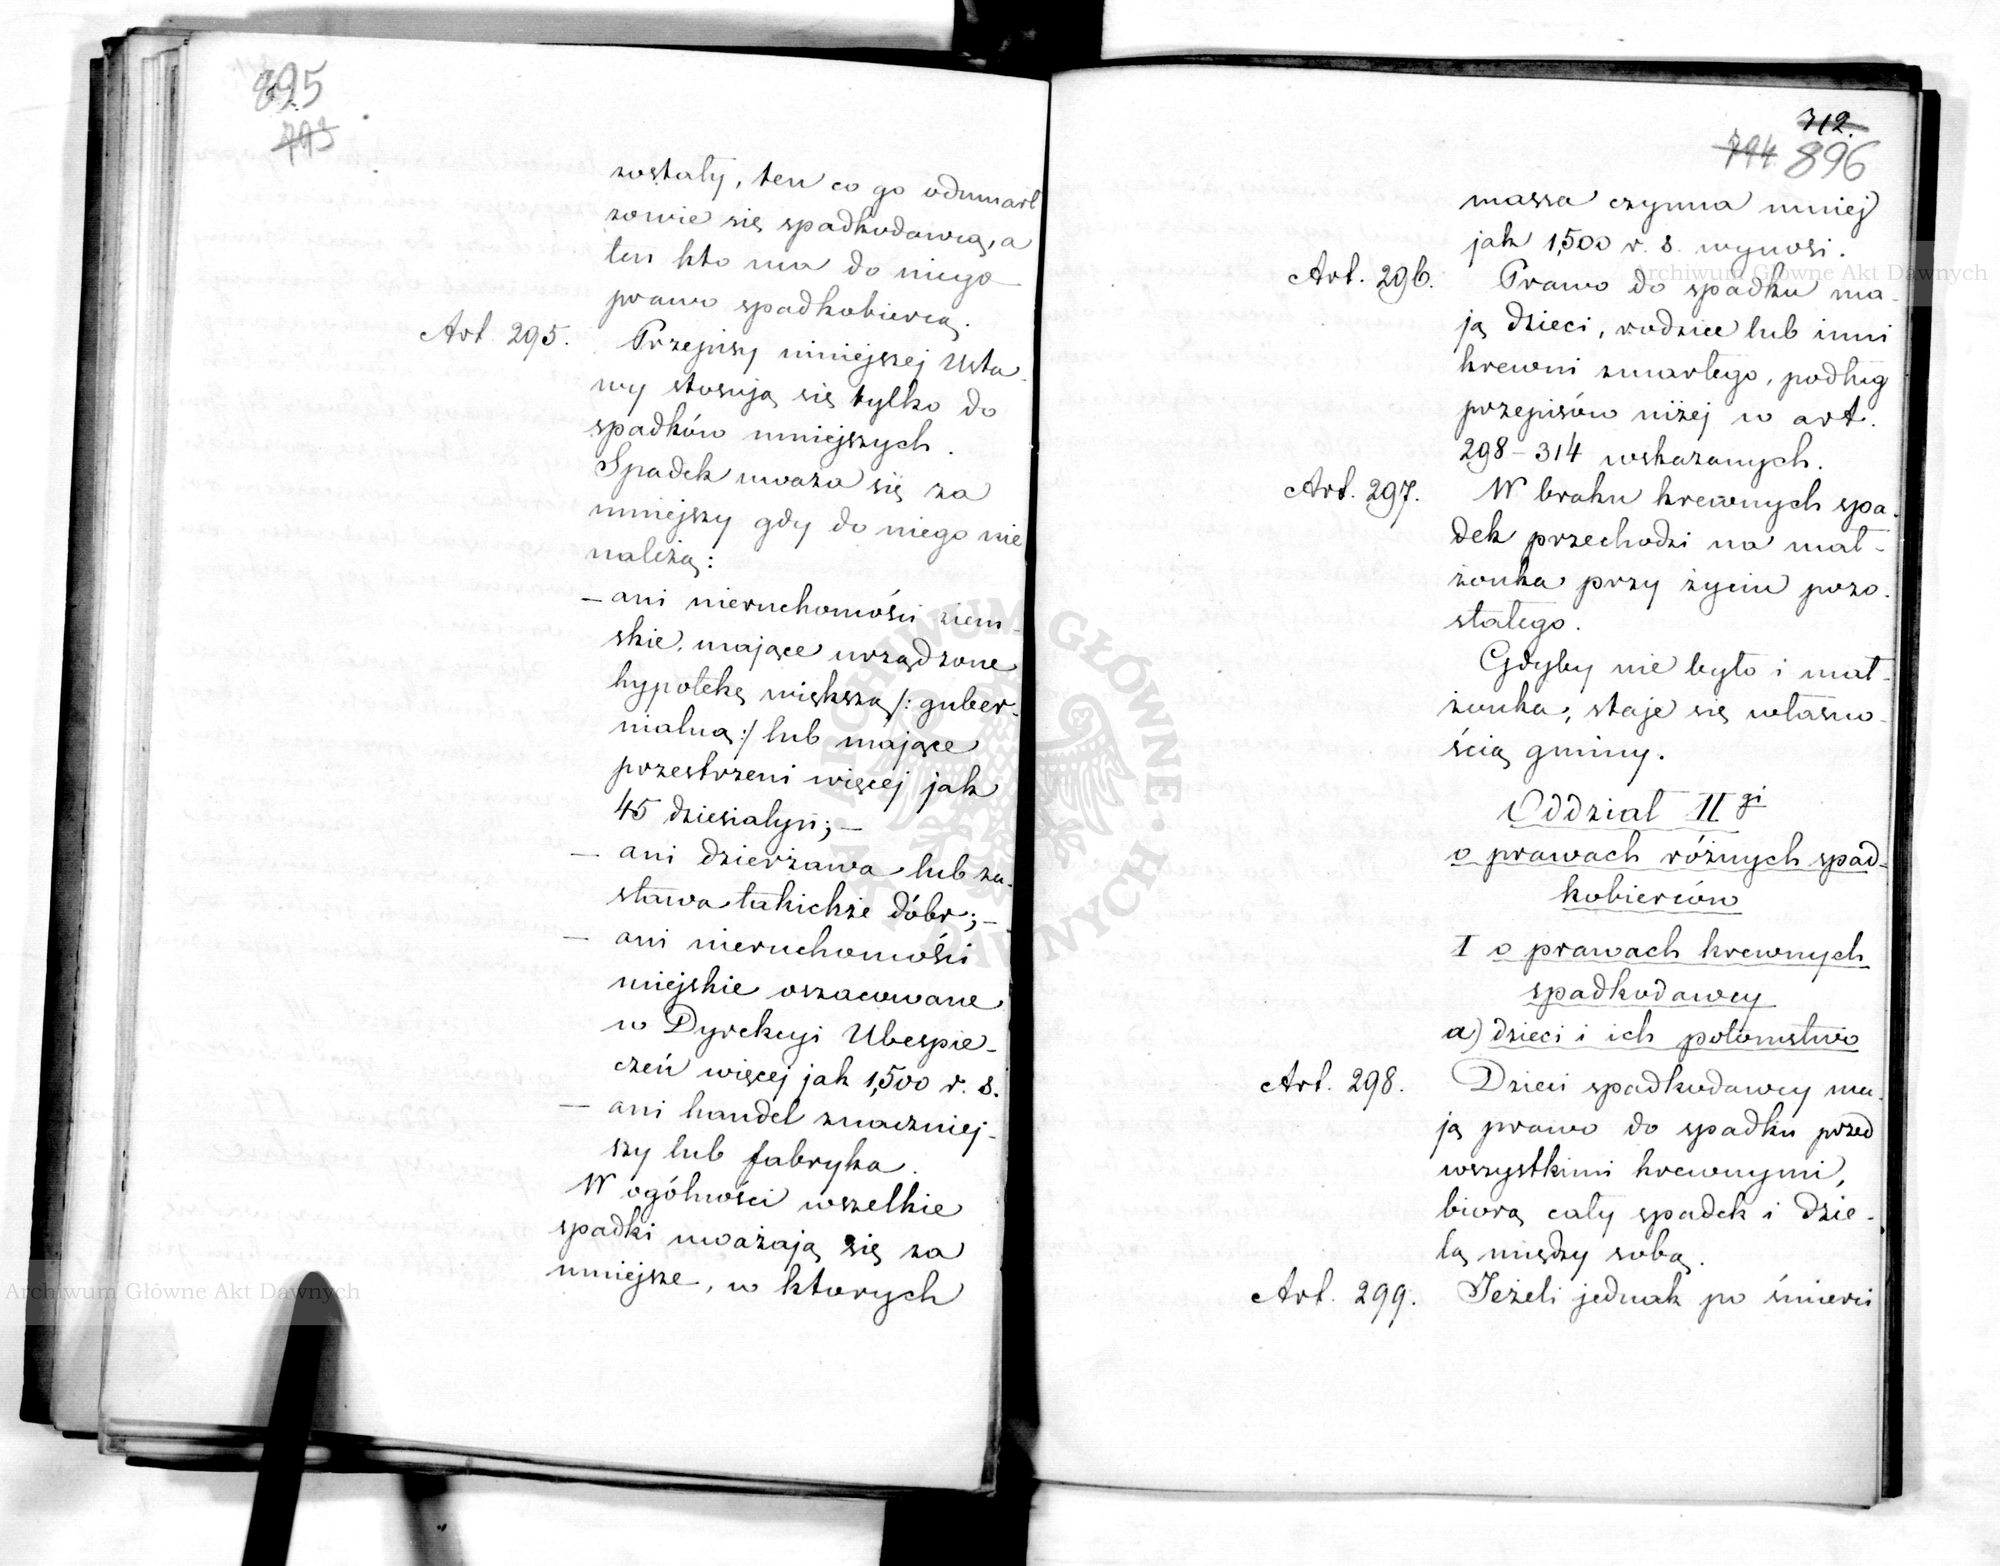 895
793
zostały, ten co go odumarł
zowie się spadkodawcą, a
ten kto ma do niego
prawo spadkobiercą.
Art. 295. Przepisy niniejszej Usta-
wy stosują się tylko do
spadków mniejszych.
Spadek uważa się za
mniejszy gdy do niego nie
należą:
— ani nieruchomości ziem-
skie, mające urządzone
hypotekę większą /: guber-
nialną :/ lub mające
przestrzeni więcej jak
45 dziesiatyn; —
— ani dzierżawa lub za-
stawa takichże dóbr; —
— ani nieruchomości
miejskie oszacowane
w Dyrekcyi Ubespie-
czeń więcej jak 1,500 r. s.
— ani handel znaczniej-
szy lub fabryka.
W ogólności wszelkie
spadki uważają się za
mniejsze, w ktorych
312.
794 896
massa czynna mniej
jak 1,500 r. s. wynosi.
Art. 296. Prawo do spadku ma-
ją dzieci, rodzice lub inni
krewni zmarłego, podług
przepisów niżej w art.
298 – 314 wskazanych.
Art. 297. W braku krewnych spa-
dek przechodzi na mał-
żonka przy życiu pozo-
stałego.
Gdyby nie było i mał-
żonka, staje się własno-
ścią gminy.
Oddział II gi
o prawach różnych spad-
kobierców
I o prawach krewnych
spadkodawcy
a) dzieci i ich potomstwo
Art. 298. Dzieci spadkodawcy ma-
ją prawo do spadku przed
wszystkimi krewnymi,
biorą cały spadek i dzie-
lą między sobą.
Art. 299. Jeżeli jednak po śmierci
Archiwum Główne Akt Dawnych
Archiwum Główne Akt Dawnych
ARCHIWUM GŁÓWNE AKT DAWNYCH